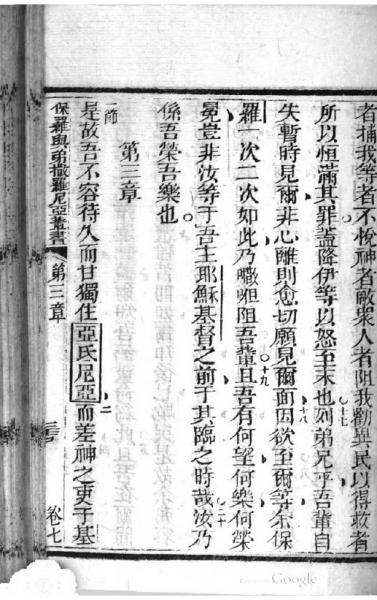 者捕我等者不悅神者敵衆人者阻我勸異民以得救者
十七
所以恒滿其罪蓋降伊等以怒至末也列弟兄乎吾輩自
十八
失暫時見爾非心離則愈切願見爾面因欲至爾等余保
十九
羅一次二次如此乃阻吾輩且吾有何望何樂何榮
二十
冕豈非汝等于吾主耶穌基督之前于其臨之時哉汝乃
係吾榮吾樂也
第三章
一節 二
是故吾不容待久而甘獨住亞氏尼亞而差神之吏于基
保羅與弟撒羅尼亞輩書 第三章 三 卷七
Google